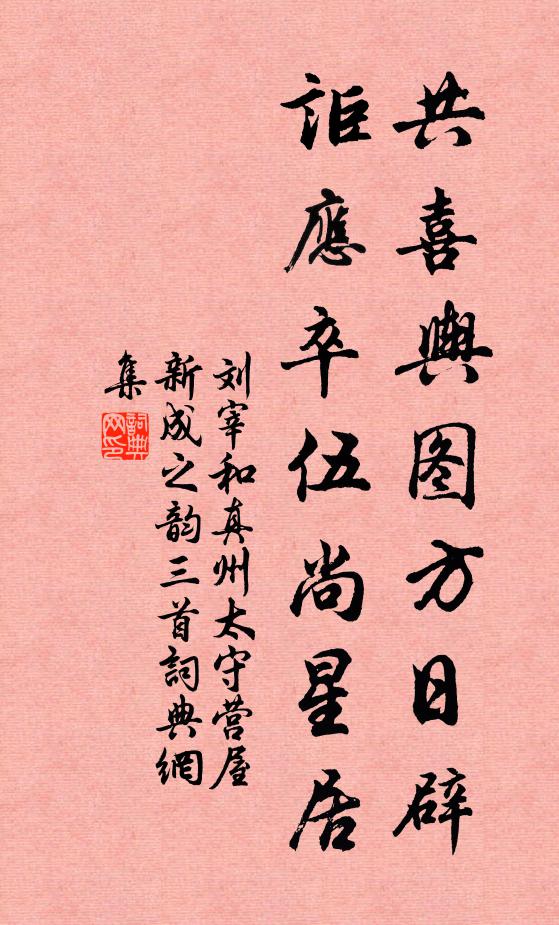 共喜舆图方日辟
詎應卒伍尚星居
刘宰和真州太守营屋
新成之韵三首詞典網
集
詞典
网印